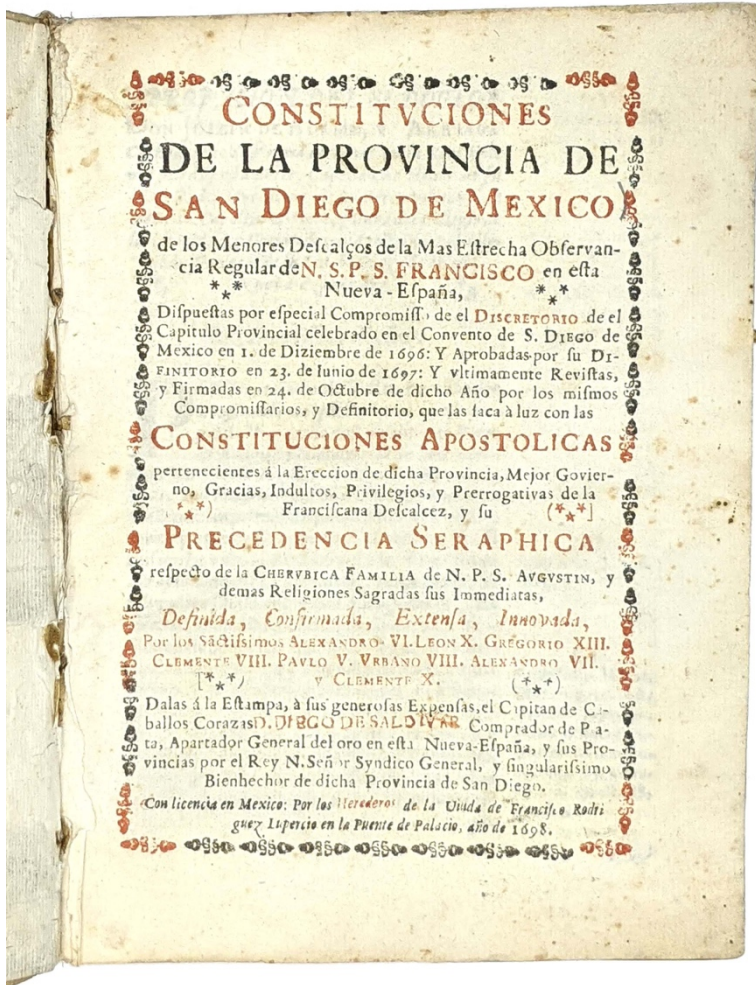 CONSTITVCIONES
DE LA PROVINCIA DE
SAN DIEGO DE MEXICO
de los Menores Descalços de la Mas Estrecha Observan-
cia Regular de N. S. P. S. FRANCISCO en esta
*** Nueva-España, ***
Dispuestas por especial Compromisso de el DISCRETORIO de el
Capitulo Provincial celebrado en el Convento de S. DIEGO de
Mexico en 1. de Diziembre de 1696: Y Aprobadas por su DI-
FINITORIO en 23. de Iunio de 1697: Y vltimamente Revistas,
y Firmadas en 24. de Octubre de dicho Año por los mismos
Compromissarios, y Definitorio, que las saca à luz con las
CONSTITUCIONES APOSTOLICAS
pertenecientes á la Ereccion de dicha Provincia, Mejor Govier-
no, Gracias, Indultos, Privilegios, y Prerrogativas de la
(***) Franciscana Descalcez, y su (***]
PRECEDENCIA SERAPHICA
respecto de la CHERVBICA FAMILIA de N. P. S. AVGVSTIN, y
demas Religiones Sagradas sus Immediatas,
Definida, Confirmada, Extensa, Innovada,
Por los Sãctissimos ALEXANDRO VI. LEON X. GREGORIO XIII.
CLEMENTE VIII. PAVLO V. VRBANO VIII. ALEXANDRO VII.
[***) y CLEMENTE X. (***)
Dalas á la Estampa, à sus generosas Expensas, el Capitan de Ca-
ballos Corazas D. DIEGO DE SALDIVAR Comprador de Pla-
ta, Apartador General del oro en esta Nueva-España, y sus Pro-
vincias por el Rey N. Señor Syndico General, y singularissimo
Bienhechor de dicha Provincia de San Diego.
Con licencia en Mexico: Por los Herederos de la Viuda de Francisco Rodri
guez Lupercio en la Puente de Palacio, año de 1698.